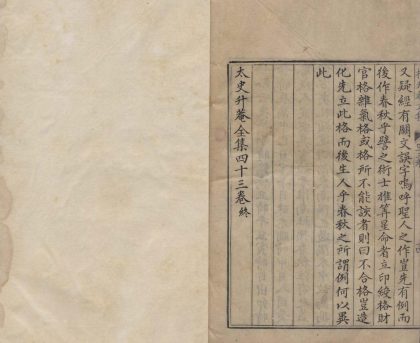 又疑經有闕文誤字嗚呼聖人之作豈先有例而
後作春秋乎譬之術士推筭星命者立印綬格財
官格雜氣格或格所不能該者則曰不合格豈造
化先立此格而後生人乎春秋之所謂例何以異
此
太史升菴全集四十三卷終